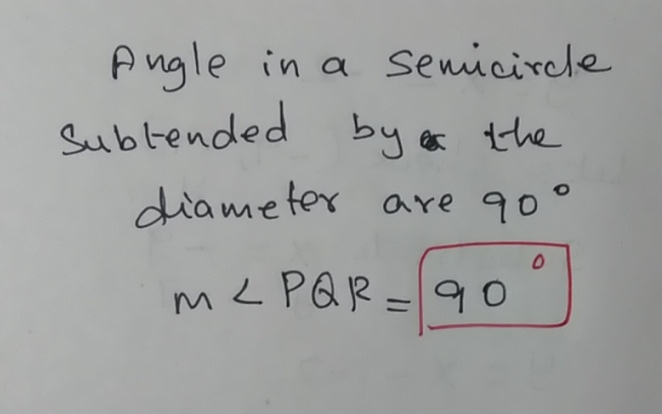 Angle in a semicircle
Subtended by the
diameter are 90°
m < PQR = 90°